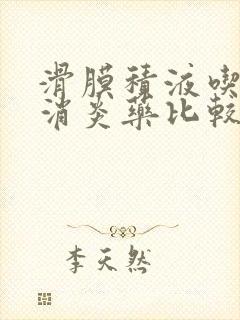 滑膜積液喫
消炎藥比較
李天然